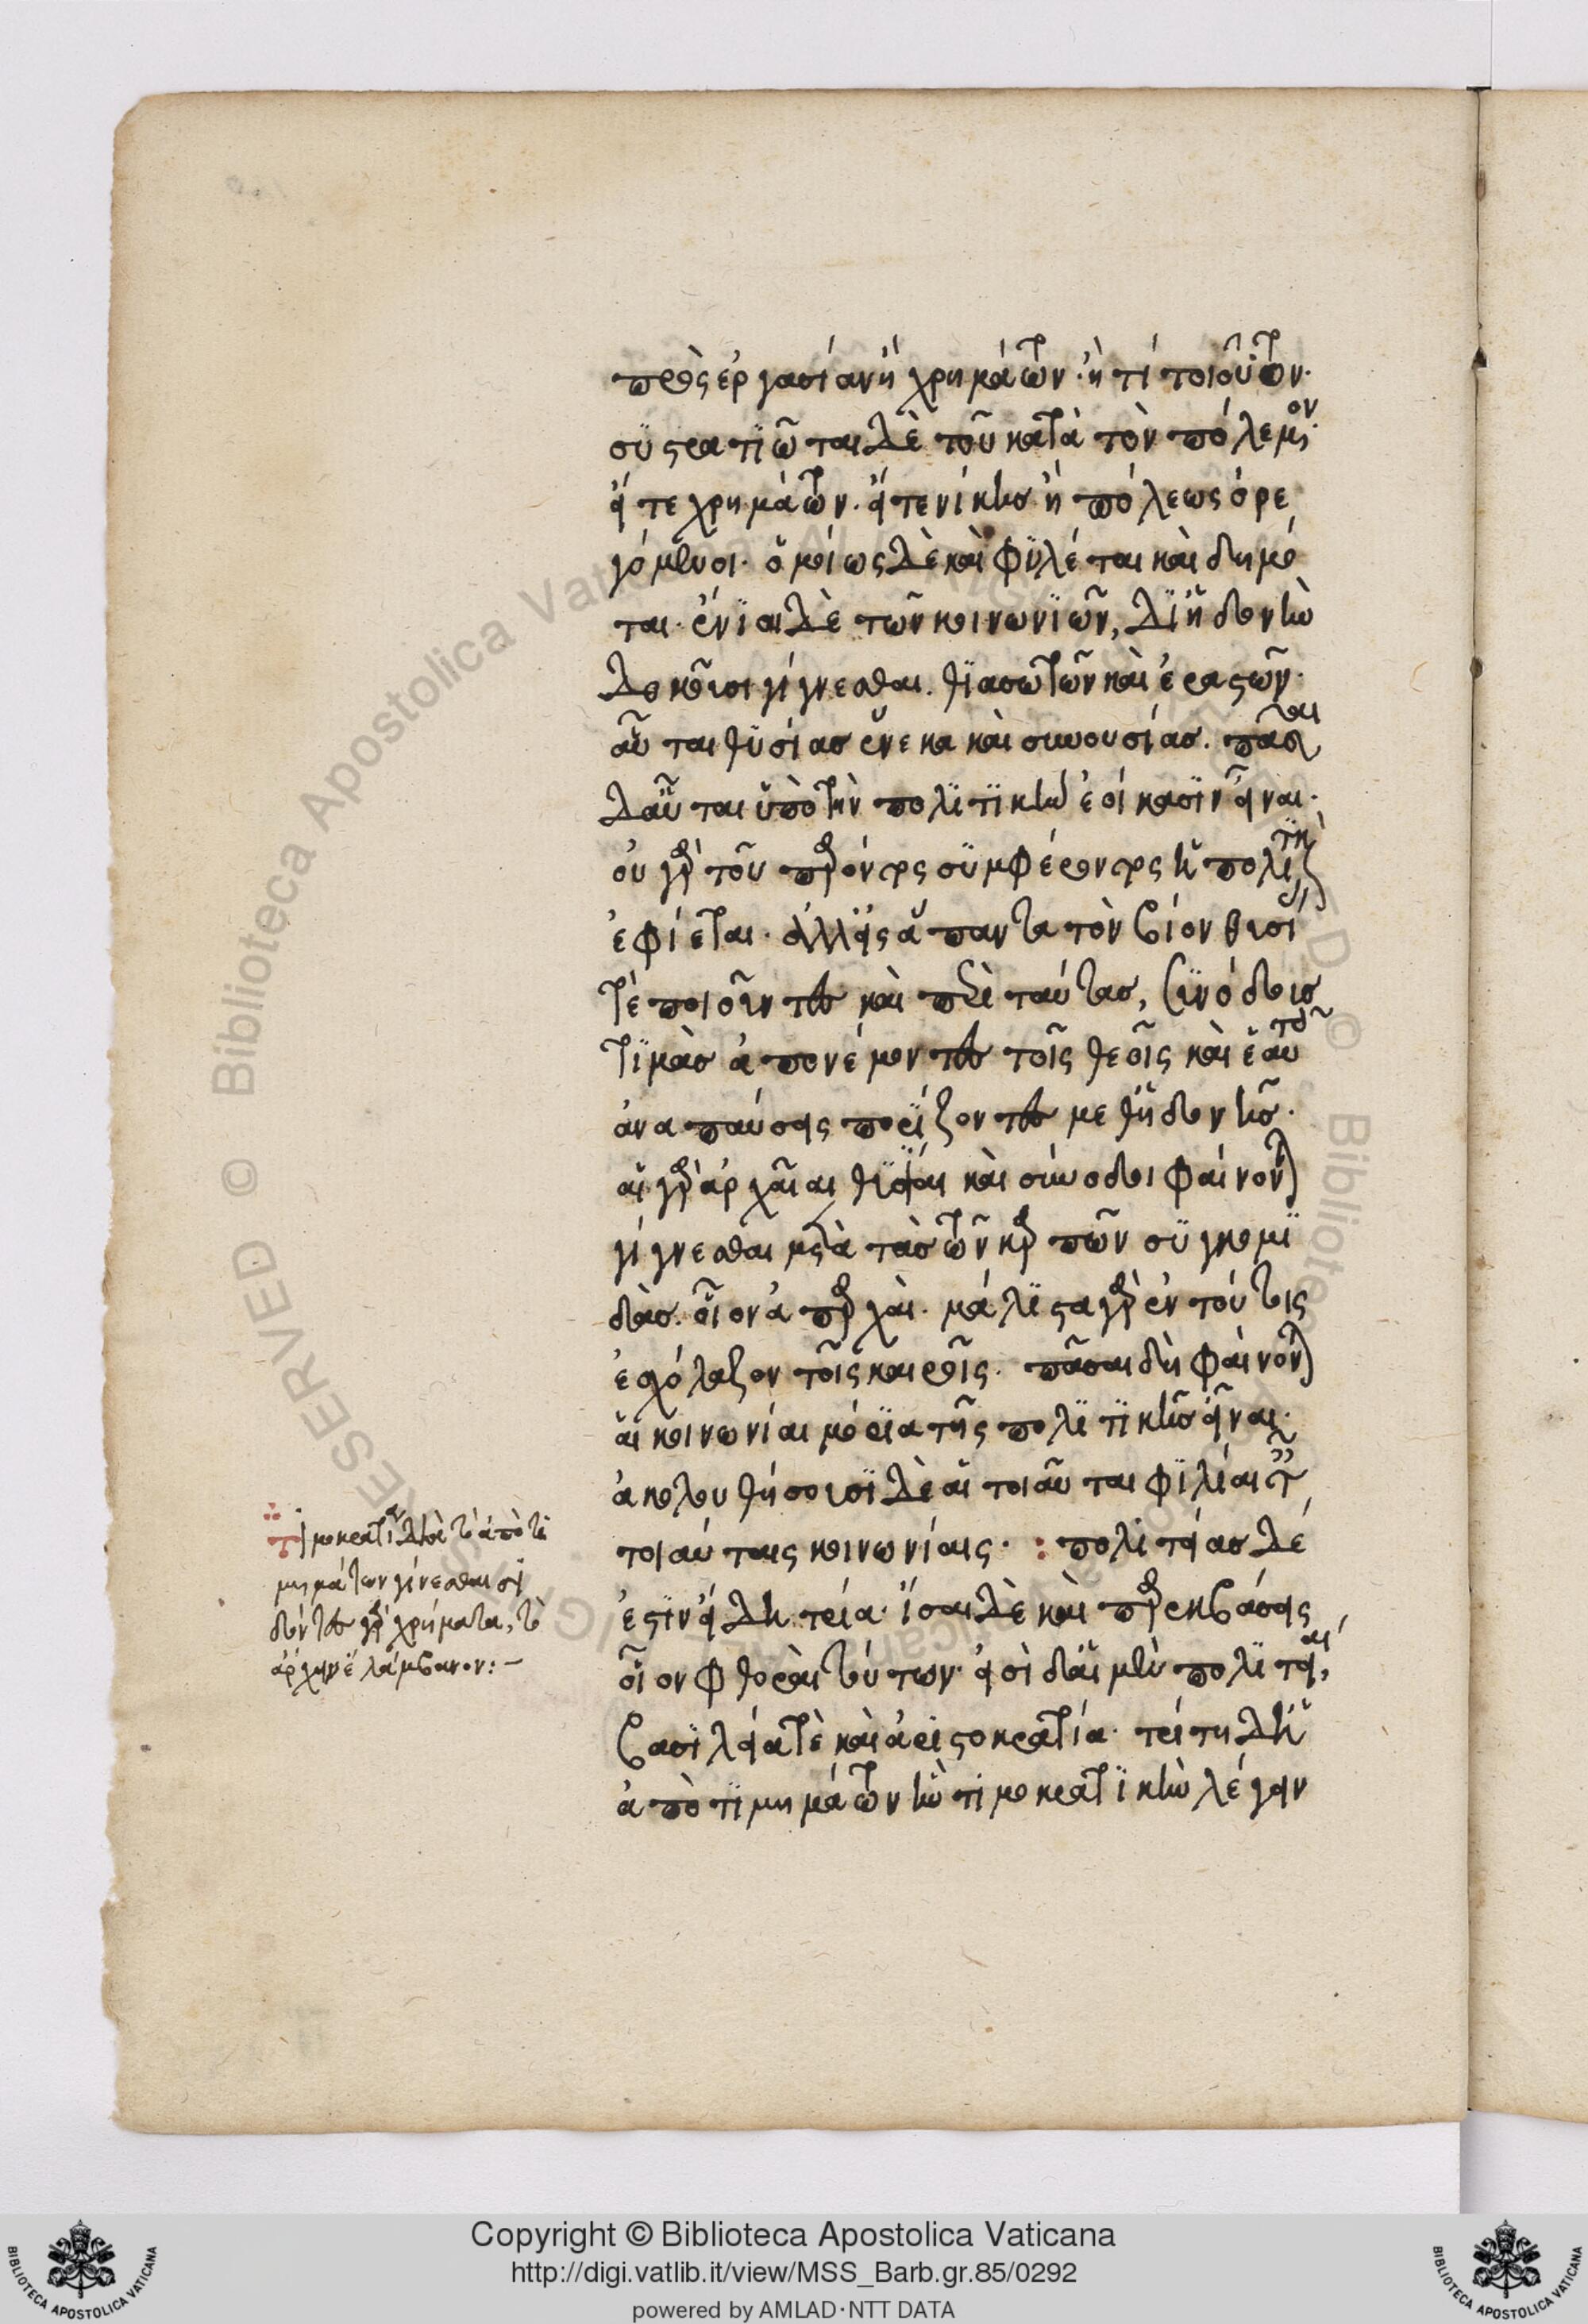 πρὸς ἐργασίαν ἢ χρημάτων· ἤ τι τοιούτων·
συστρατιῶται δὲ τοῦ κατὰ τὸν πόλεμον·
εἴτε χρημάτων· εἴτε νίκης ἢ πόλεως ὀρε
γόμενοι· ὁμοίως δὲ καὶ φυλέται καὶ δημό
ται· ἔνιαι δὲ τῶν κοινωνιῶν, δι ἡδονὴν
δοκοῦσι γίγνεσθαι. θιασωτῶν καὶ ἐραστῶν·
αὗται θυσίας ἕνεκα καὶ συνουσίας. πᾶσαι
δ αὗται ὑπὸ τὴν πολιτικὴν ἐοίκασιν εἶναι·
οὐ γὰρ τοῦ παρόντος συμφέροντος ἡ πολιτικὴ
ἐφίεται· ἀλλ εἰς ἅπαντα τὸν βίον θυσί
τὲ ποιοῦντες καὶ περὶ ταύτας, συνόδοις
τιμὰς ἀπονέμοντες τοῖς θεοῖς καὶ ἑαυτοῖς
ἀναπαύσεις πορίζοντες μεθ ἡδονῆς·
αἱ γὰρ ἀρχαῖαι θυσίαι καὶ σύνοδοι φαίνονται
γίγνεσθαι μετὰ τὰς τῶν καρπῶν συγκομι
δὰς· οἷον ἀπαρχαὶ· μάλιστα γὰρ ἐν τούτοις
ἐσχόλαζον τοῖς καιροῖς· πᾶσαι δὴ φαίνονται
αἱ κοινωνίαι μόρια τῆς πολιτικῆς εἶναι·
ἀκολουθήσουσι δὲ αἱ τοιαῦται φιλίαι ταῖς
τοιαύταις κοινωνίαις· : πολιτείας δέ
ἐστιν εἴδη τρία· ἴσαι δὲ καὶ παρεκβάσεις
οἷον φθοραὶ τούτων· εἰσὶ δ αἱ μὲν πολιτεῖαι,
βασιλεία τὲ καὶ ἀριστοκρατία· τρίτη δ ἡ
ἀπὸ τιμημάτων ἣν τιμοκρατικὴν λέγειν
τιμοκρατία διὰ τὸ ἀπὸ τι
μημάτων γίνεσθαι οἱ
δόντες γὰρ χρήματα, τὸ
ἄρχειν ἐλάμβανον:–
Copyright © Biblioteca Apostolica Vaticana
http://digi.vatlib.it/view/MSS_Barb.gr.85/0292
powered by AMLAD·NTT DATA